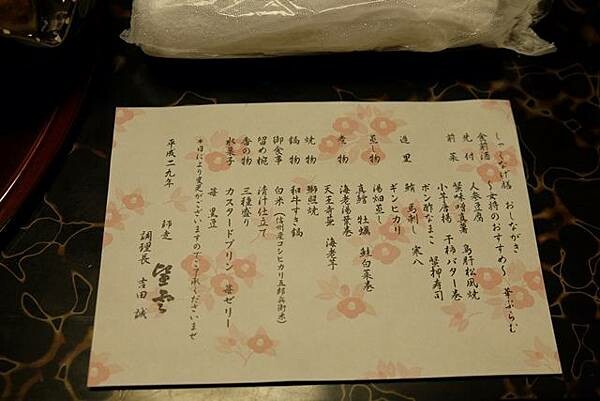 しゃくなげ膳 おしながき
食前酒 ~女将のおすすめ~ 華ぷらむ
先付 人参豆腐
前菜 蟹味噌真薯 鳥肝松風焼
小芋唐揚 干柿バター巻
ポン酢なまこ 蟹押寿司
造里 鮪 馬刺し 寒八
ギンヒカリ
蒸し物 湯畑蒸し
真鱈 牡蠣 鮭白菜巻
煮物 海老湯葉巻 海老芋
天王寺蕪
焼物 鰤照焼
鍋物 和牛すき鍋
御食事 白米(信州産コシヒカリ五郎兵衛米)
留め椀 清汁仕立て
香の物 三種盛り
水菓子 カスタードプリン 苺ゼリー
苺 黒豆
*日により変更がございますのでご了承くださいませ
平成二九年 師走
調理長 吉田 誠